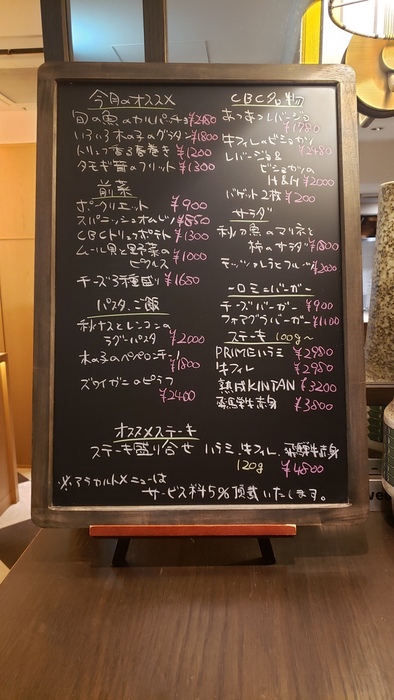 今月のオススメ
旬の魚のカルパッチョ ¥2480
いろいろ木の子のグラタン ¥1800
トリュフ香る春巻き ¥1200
タモギ茸のフリット ¥1300
前菜
ポークリエット ¥900
スパニッシュオムレツ ¥850
CBCトリュフポテト ¥1300
ムール貝と野菜の
ピクルス ¥1000
チーズ3種盛り ¥1680
パスタ、ご飯
秋ナスとレンコンの
ラグーパスタ ¥2000
木の子のペペロンチーノ
¥1800
ズワイガニのピラフ
¥2400
CBC名物
あつあつレバージョ
¥1780
牛フィレのビショカツ
¥2480
レバージョ&
ビショカツの
H&H ¥2000
バゲット2枚 ¥200
サラダ
秋刀魚のマリネと
柿のサラダ ¥1800
モッツァレラとフルーツ
¥2000
ミニバーガー
チーズバーガー ¥900
フォアグラバーガー ¥1100
ステーキ 100g〜
PRIMEハラミ ¥2980
牛フィレ ¥2980
熟成KINTAN ¥3200
飛騨牛赤身 ¥3800
オススメステーキ
ステーキ盛り合せ ハラミ、牛フィレ、飛騨牛赤身
120g ¥4800
※アラカルトメニューは
サービス料5%頂戴いたします。